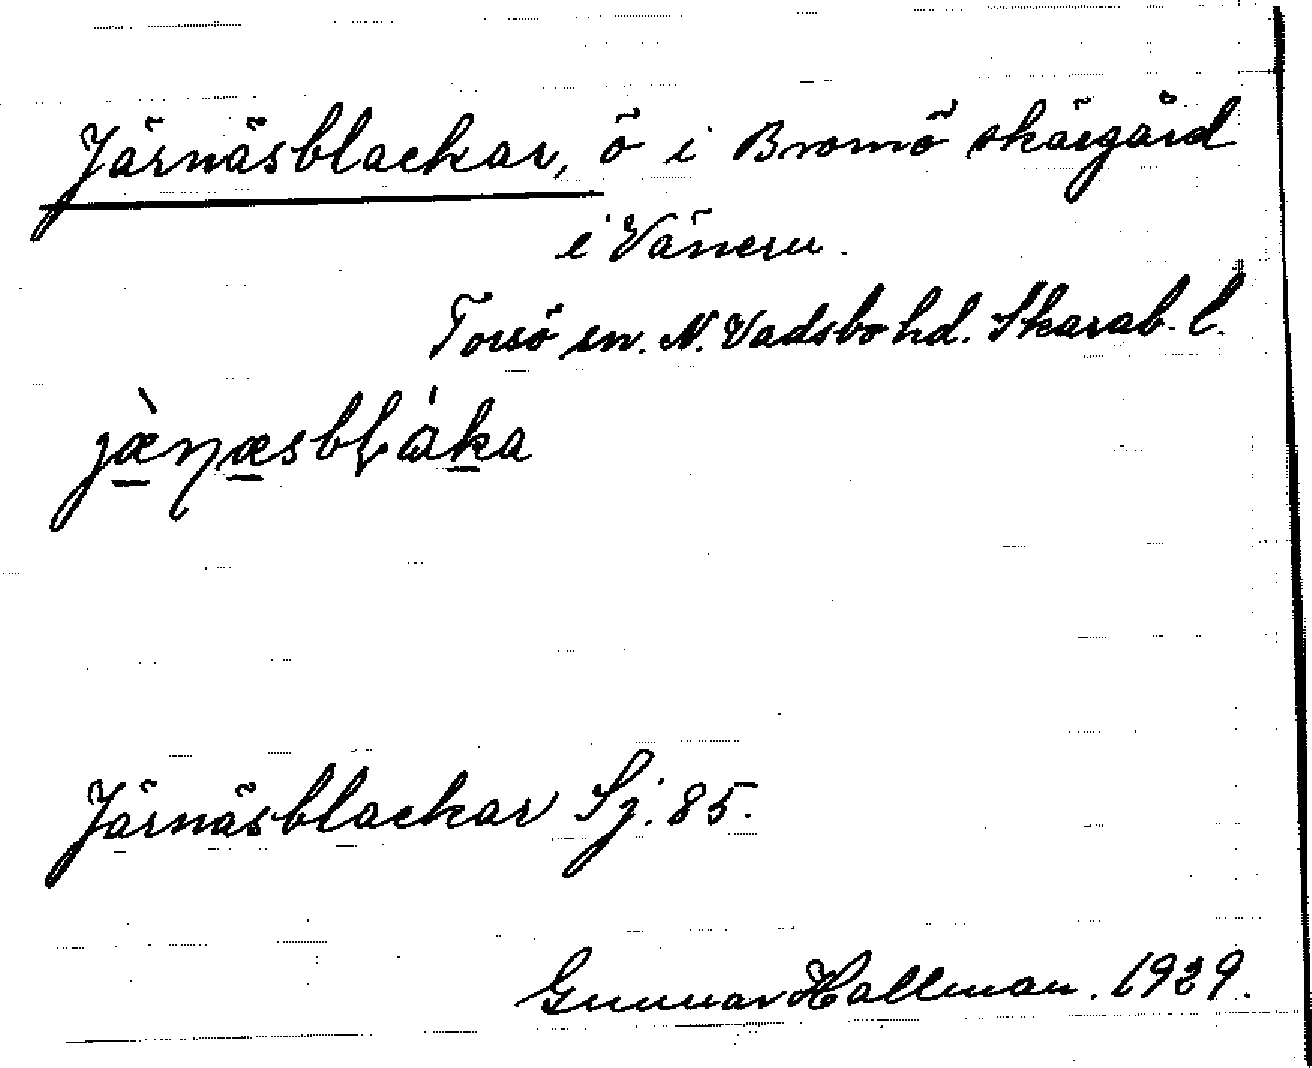 Järnäsblackar, ö i Bromö skärgård
i Vänern.
Torsö sn. N. Vadsbo hd. Skarab. l.
jæ̀ɳæsbɽáka
Järnäsblackar Sj. 85.
Gunnar Hallman. 1929.